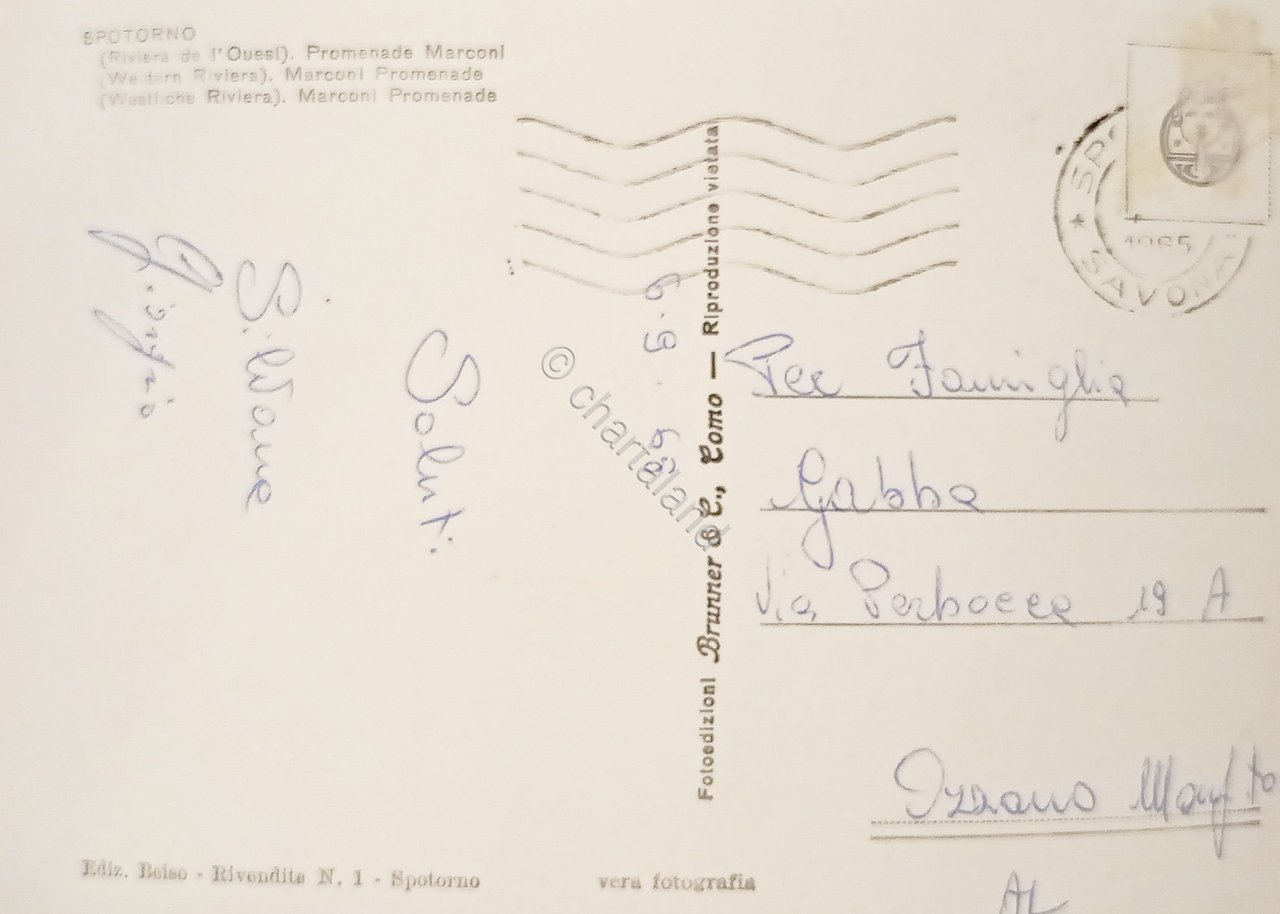 SPOTORNO
(Riviera de l'Ouest). Promenade Marconi
(Western Riviera). Marconi Promenade
(Westliche Riviera). Marconi Promenade
SPO
1965
SAVONA
6.9.65
Saluti
Silvana
Giorgio
Fotoedizioni Brunner & C., Como — Riproduzione vietata
© chartaland
Per Famiglia
Gabba
Via Perbocca 19 A
Ozzano Monf to
AL
Ediz. Beiso - Rivendita N. 1 - Spotorno
vera fotografia